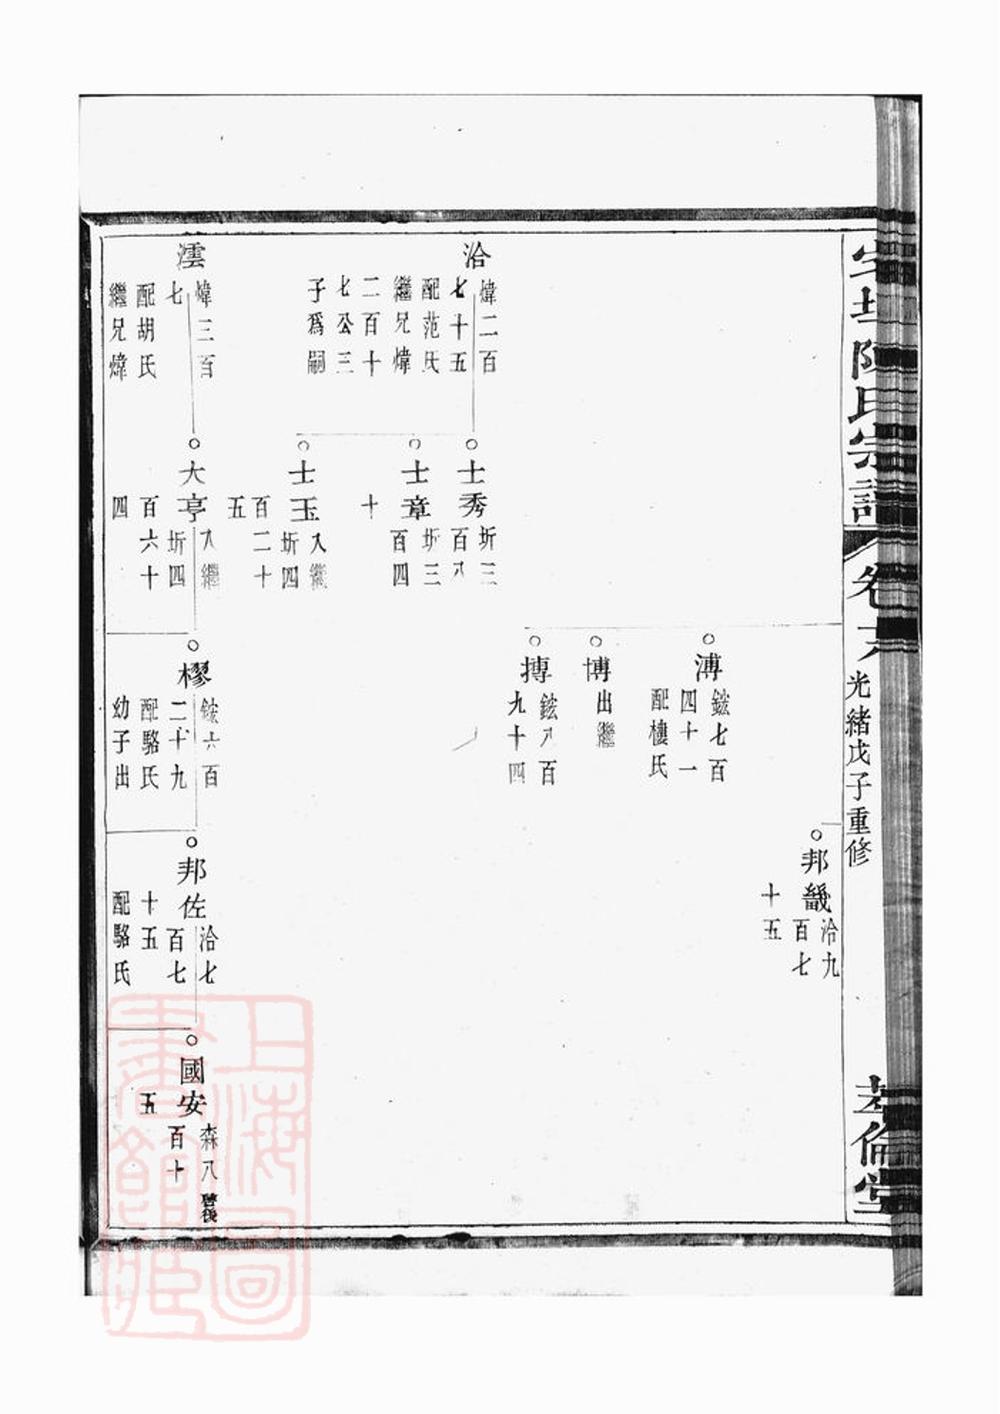 陳氏宗譜
卷六
光緒戊子重修
倫堂
邦畿
洽九
百七
十五
溥
鋐七百
四十一
配樓氏
博
出繼
摶
鋐八百
九十四
洽
煒二百
七十五
配范氏
繼兄煒
二百十
七公三
子爲嗣
士秀
圻三
百八
士章
圻三
百四
十
士玉
入繼
圻四
百二十
五
澐
煒三百
七
配胡氏
繼兄煒
大亨
入繼
圻四
百六十
四
樛
鋐六百
二十九
配駱氏
幼子出
邦佐
洽七
百七
十五
配駱氏
國安
森八
百十
五
上海圖書館藏